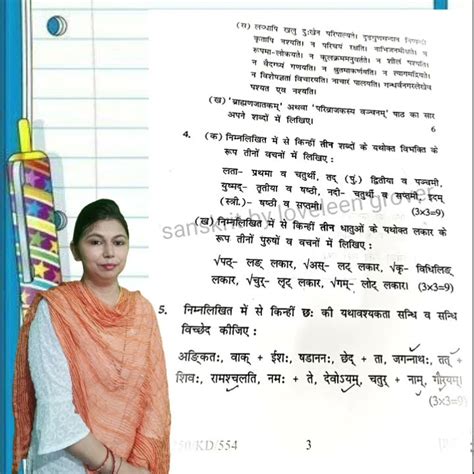 (ख) लब्धापि खलु दुःखेन परिपाल्यते।
न परिचयं रक्षति। नाभिजनमीक्षते। न
रूपमा-लोकयते। न कुलक्रममनुवर्तते। न शीलं पश्यति।
न वैदग्ध्यं गणयति। न श्रुतमाकर्णयति।
न विशेषज्ञतां विचारयति। नाचारं पालयति। गन्धर्वनगरलेखेव
पश्यत एव नश्यति।
(ख) 'ब्राह्मणजातकम्' अथवा 'परिव्राजकस्य वञ्चनम्' पाठ का सार
अपने शब्दों में लिखिए।
6
4. (क) निम्नलिखित में से किन्हीं तीन शब्दों के यथोक्त विभक्ति के
रूप तीनों वचनों में लिखिए :
लता- प्रथमा व चतुर्थी, तद् (पु.) द्वितीया व पञ्चमी,
युष्मद्- तृतीया व षष्ठी, नदी- चतुर्थी व सप्तमी, इदम्
(स्त्री.)- षष्ठी व सप्तमी। (3x3=9)
sanskrit by loveleen grover
(ख) निम्नलिखित में से किन्हीं तीन धातुओं के यथोक्त लकार के
रूप तीनों पुरुषों व वचनों में लिखिए :
√पद्- लङ् लकार, √अस्- लट् लकार, √कृ- विधिलिङ्
लकार, √चुर्- लृट् लकार, √गम्- लोट् लकार। (3x3=9)
5. निम्नलिखित में से किन्हीं छः की यथावश्यकता सन्धि व सन्धि
विच्छेद कीजिए :
अङ्कितः, वाक् + ईशः, षडाननः, छेद् + ता, जगन्नाथः, तत् +
शिवः, रामश्चलति, नमः + ते, देवोऽयम्, चतुर् + नाम्, गौरयम्।
(3x3=9)
750/KD/554 3